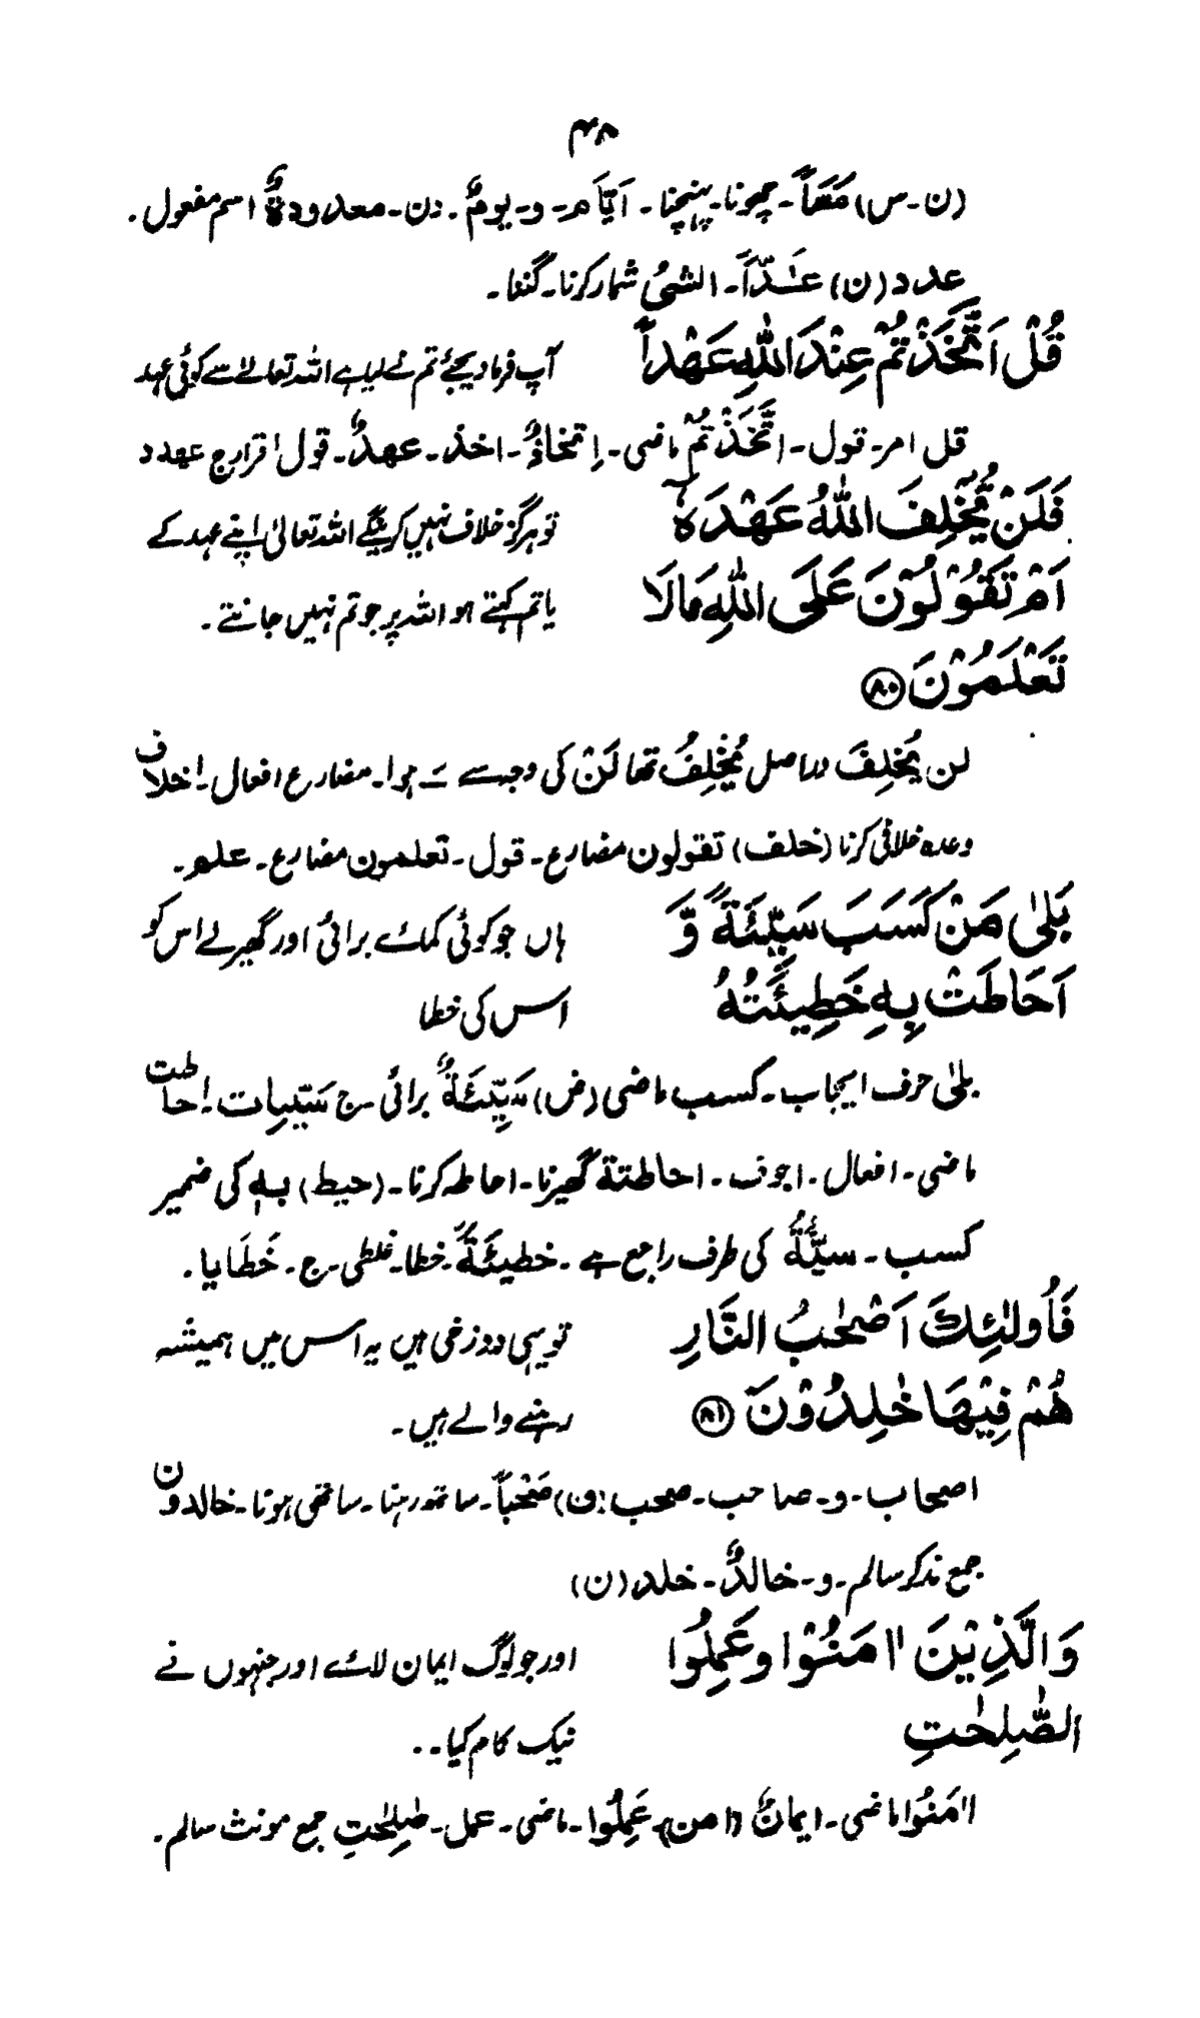 ۴۸
(ن-س) مَسّاً۔ چھونا۔ پہنچنا۔ اَیَّام۔ و۔ یومٌ۔ دن۔ معدودۃٌ اسم مفعول۔
عدد (ن) عَدّاً۔ الشیُٔ شمار کرنا۔ گننا۔
قُلْ اَتَّخَذْتُمْ عِنْدَ اللّٰهِ عَهْدًا آپ فرما دیجئے تم نے لیا ہے اللہ تعالےٰ سے کوئی عہد
قل امر۔ قول۔ اتَّخَذْتُمْ ماضی۔ اِتخاذٌ۔ اخذ۔ عھدٌ۔ قول اقرار ج عھدد
فَلَنْ يُّخْلِفَ اللّٰهُ عَهْدَهٗٓ تو ہرگز خلاف نہیں کریںگے اللہ تعالیٰ اپنے عہد کے
اَمْ تَقُوْلُوْنَ عَلَى اللّٰهِ مَا لَا یا تم کہتے ہو اللہ پر جو تم نہیں جانتے۔
تَعْلَمُوْنَ ۸۰
لن یُخْلِفَ دراصل یُخْلِفُ تھا لَنْ کی وجہ سے ـَ ہوا۔ مضارع افعال۔ اِخلاف
وعدہ خلافی کرنا (خلف) تقولون مضارع۔ قول۔ تعلمون مضارع۔ علم۔
بَلٰى مَنْ كَسَبَ سَيِّئَةً وَّ ہاں جو کوئی کمائے برائی اور گھیر لے اس کو
اَحَاطَتْ بِهٖ خَطِيْئَتُهٗ اس کی خطا
بلیٰ حرف ایجاب۔ کسب ماضی (ض) سَیِّئَۃٌ برائی۔ ج سَیّیِات۔ اِحاطت
ماضی۔ افعال۔ اجوف۔ احاطتۃ گھیرنا۔ احاطہ کرنا۔ (حیط) بہٖ کی ضمیر
کسب۔ سیّئَۃٌ کی طرف راجع ہے۔ خطیئَۃٌ۔ خطا۔ غلطی۔ ج۔ خَطَایا۔
فَاُولٰٓئِكَ اَصْحٰبُ النَّارِ تو یہی دوزخی ہیں یہ اس میں ہمیشہ
هُمْ فِيْهَا خٰلِدُوْنَ ۸۱ رہنے والے ہیں۔
اصحاب۔ و۔ صاحب۔ صحب (س) صَحْباً۔ ساتھ رہنا۔ ساتھی ہونا۔ خالدون
جمع مذکر سالم۔ و۔ خالدٌ۔ خلد (ن)
وَالَّذِيْنَ اٰمَنُوْا وَعَمِلُوا اور جو لوگ ایمان لائے اور جنہوں نے
الصّٰلِحٰتِ نیک کام کیا۔۔
اٰمَنُوْا ماضی۔ ایمانٌ (امن) عَمِلُوا۔ ماضی۔ عمل۔ صٰلِحٰتِ جمع مونث سالم۔